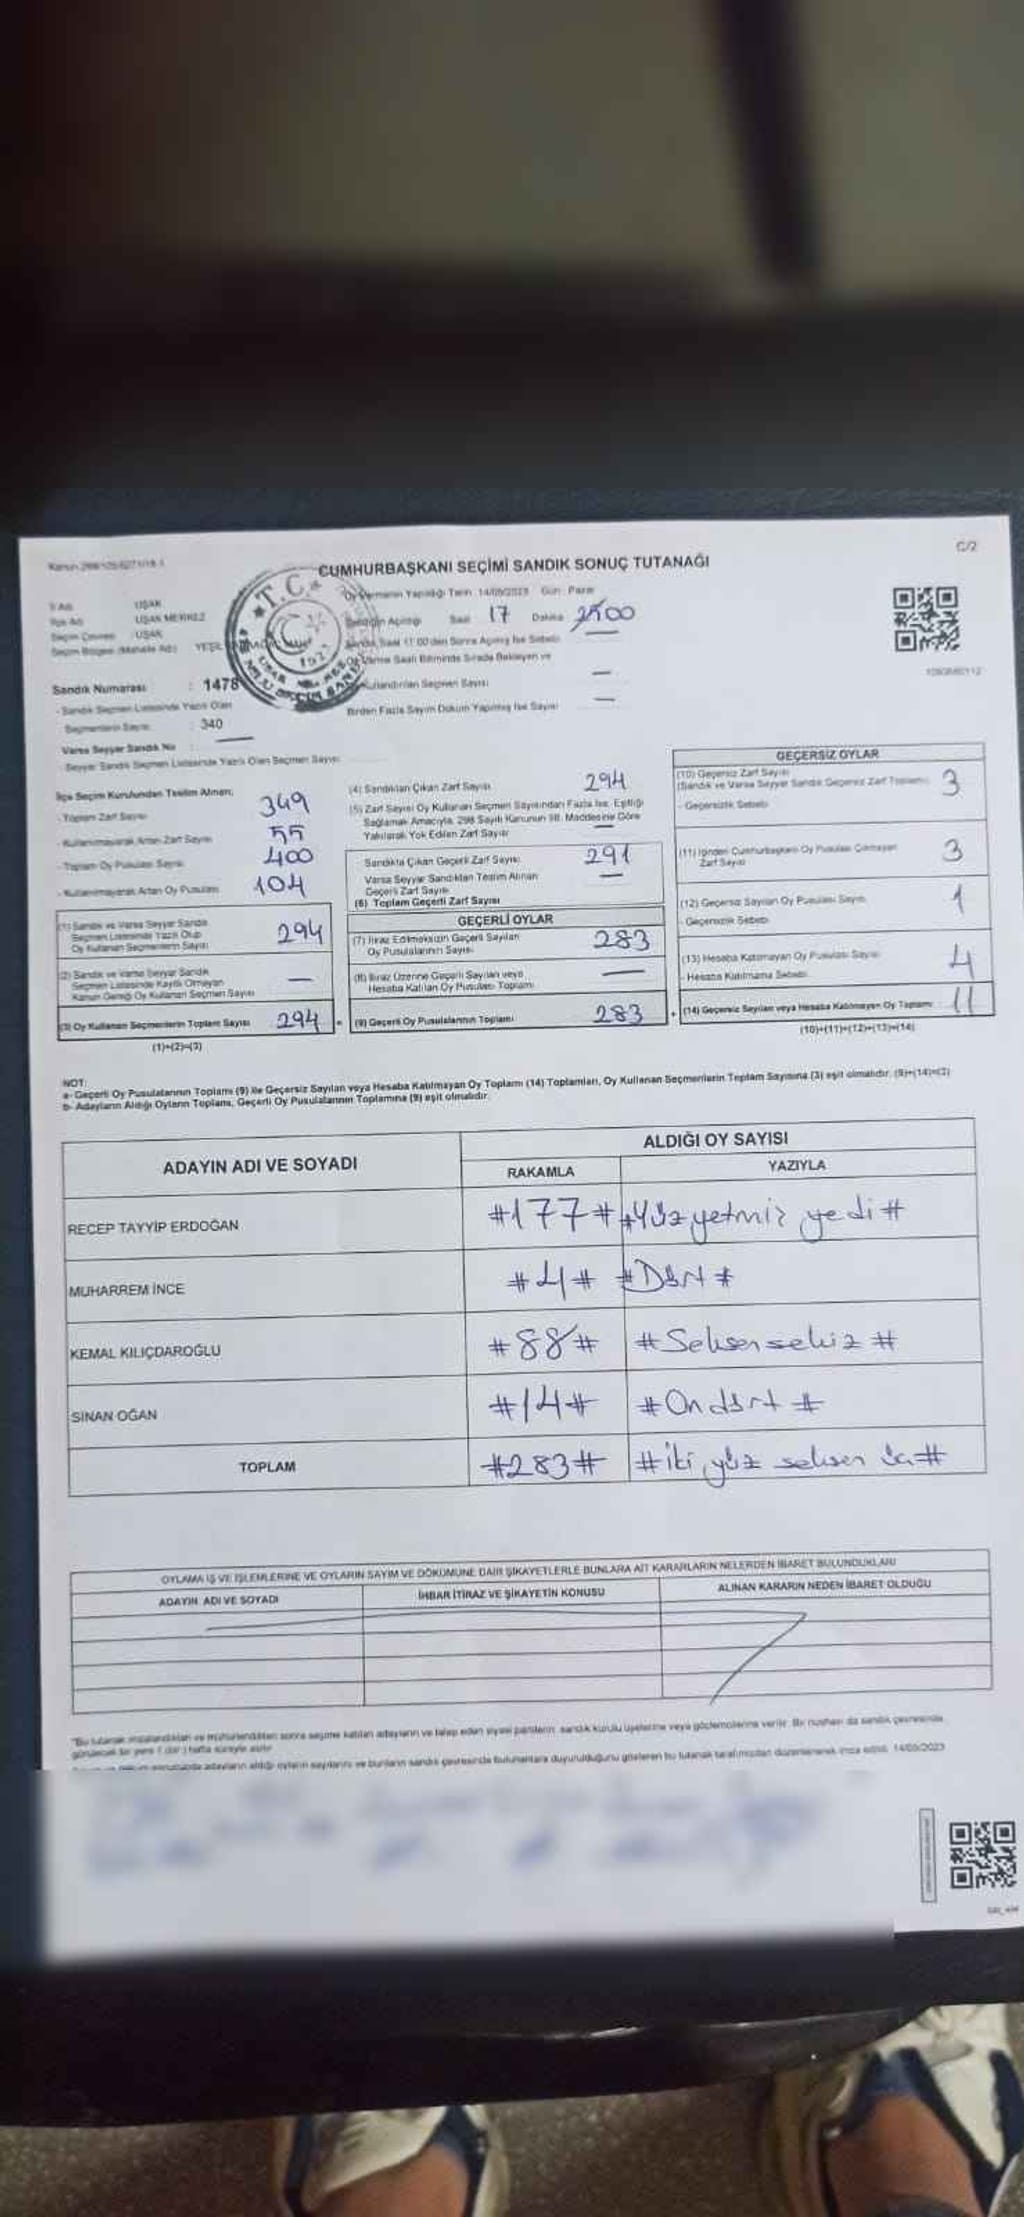 C/2
CUMHURBAŞKANI SEÇİMİ SANDIK SONUÇ TUTANAĞI
İli Adı UŞAK
İlçe Adı UŞAK MERKEZ
Seçim Çevresi UŞAK
Seçim Bölgesi (Mahalle Adı) YEŞİL
T.C.
Oy Vermenin Yapıldığı Tarih 14/05/2023 Gün: Pazar
Sandığın Açıldığı Saat 17 Dakika
Sandık Saat 17:00'den Sonra Açılmış İse Sebebi
Oy Verme Saati Bitiminde Sırada Bekleyen ve
Kullandırılan Seçmen Sayısı —
Birden Fazla Sayım Döküm Yapılmış İse Sayısı —
Sandık Numarası : 1478
- Sandık Seçmen Listesinde Yazılı Olan
Seçmenlerin Sayısı : 340
Varsa Seyyar Sandık No —
- Seyyar Sandık Seçmen Listesinde Yazılı Olan Seçmen Sayısı
İlçe Seçim Kurulundan Teslim Alınan;
- Toplam Zarf Sayısı 349
- Kullanılmayarak Artan Zarf Sayısı 55
- Toplam Oy Pusulası Sayısı 400
- Kullanılmayarak Artan Oy Pusulası 104
(1) Sandık ve Varsa Seyyar Sandık
Seçmen Listesinde Yazılı Olup
Oy Kullanan Seçmenlerin Sayısı 294
(2) Sandık ve Varsa Seyyar Sandık
Seçmen Listesinde Kayıtlı Olmayan
Kanun Gereği Oy Kullanan Seçmen Sayısı —
(3) Oy Kullanan Seçmenlerin Toplam Sayısı 294 =
(1)+(2)=(3)
(4) Sandıktan Çıkan Zarf Sayısı 294
(5) Zarf Sayısı Oy Kullanan Seçmen Sayısından Fazla İse, Eşitliği
Sağlamak Amacıyla, 298 Sayılı Kanunun 98. Maddesine Göre
Yakılarak Yok Edilen Zarf Sayısı —
Sandıkta Çıkan Geçerli Zarf Sayısı 291
Varsa Seyyar Sandıktan Teslim Alınan
Geçerli Zarf Sayısı —
(6) Toplam Geçerli Zarf Sayısı
GEÇERLİ OYLAR
(7) İtiraz Edilmeksizin Geçerli Sayılan
Oy Pusulalarının Sayısı 283
(8) İtiraz Üzerine Geçerli Sayılan veya
Hesaba Katılan Oy Pusulası Toplamı —
(9) Geçerli Oy Pusulalarının Toplamı 283 +
GEÇERSİZ OYLAR
(10) Geçersiz Zarf Sayısı
(Sandık ve Varsa Seyyar Sandık Geçersiz Zarf Toplamı) 3
- Geçersizlik Sebebi
(11) İçinden Cumhurbaşkanı Oy Pusulası Çıkmayan
Zarf Sayısı 3
(12) Geçersiz Sayılan Oy Pusulası Sayısı 1
- Geçersizlik Sebebi
(13) Hesaba Katılmayan Oy Pusulası Sayısı 4
- Hesaba Katılmama Sebebi
(14) Geçersiz Sayılan veya Hesaba Katılmayan Oy Toplamı 11
(10)+(11)+(12)+(13)=(14)
NOT:
a- Geçerli Oy Pusulalarının Toplamı (9) ile Geçersiz Sayılan veya Hesaba Katılmayan Oy Toplamı (14) Toplamları, Oy Kullanan Seçmenlerin Toplam Sayısına (3) eşit olmalıdır. (9)+(14)=(3)
b- Adayların Aldığı Oyların Toplamı, Geçerli Oy Pusulalarının Toplamına (9) eşit olmalıdır.
ADAYIN ADI VE SOYADI
ALDIĞI OY SAYISI
RAKAMLA YAZIYLA
RECEP TAYYİP ERDOĞAN #177# #Yüz yetmiş yedi#
MUHARREM İNCE #4# #Dört#
KEMAL KILIÇDAROĞLU #88# #Seksen sekiz#
SİNAN OĞAN #14# #On dört#
TOPLAM #283# #iki yüz seksen üç#
OYLAMA İŞ VE İŞLEMLERİNE VE OYLARIN SAYIM VE DÖKÜMÜNE DAİR ŞİKAYETLERLE BUNLARA AİT KARARLARIN NELERDEN İBARET BULUNDUKLARI
ADAYIN ADI VE SOYADI İHBAR İTİRAZ VE ŞİKAYETİN KONUSU ALINAN KARARIN NEDEN İBARET OLDUĞU
"Bu tutanak imzalandıktan ve mühürlendikten sonra seçime katılan adayların ve talep eden siyasi partilerin sandık kurulu üyelerine veya gözlemcilerine verilir. Bir nüshası da sandık çevresinde
görülecek bir yere 1 (bir) hafta süreyle asılır.
adayların aldığı oyların sayılarını ve bunların sandık çevresinde bulunanlara duyurulduğunu gösteren bu tutanak tarafımızdan düzenlenerek imza edildi. 14/05/2023